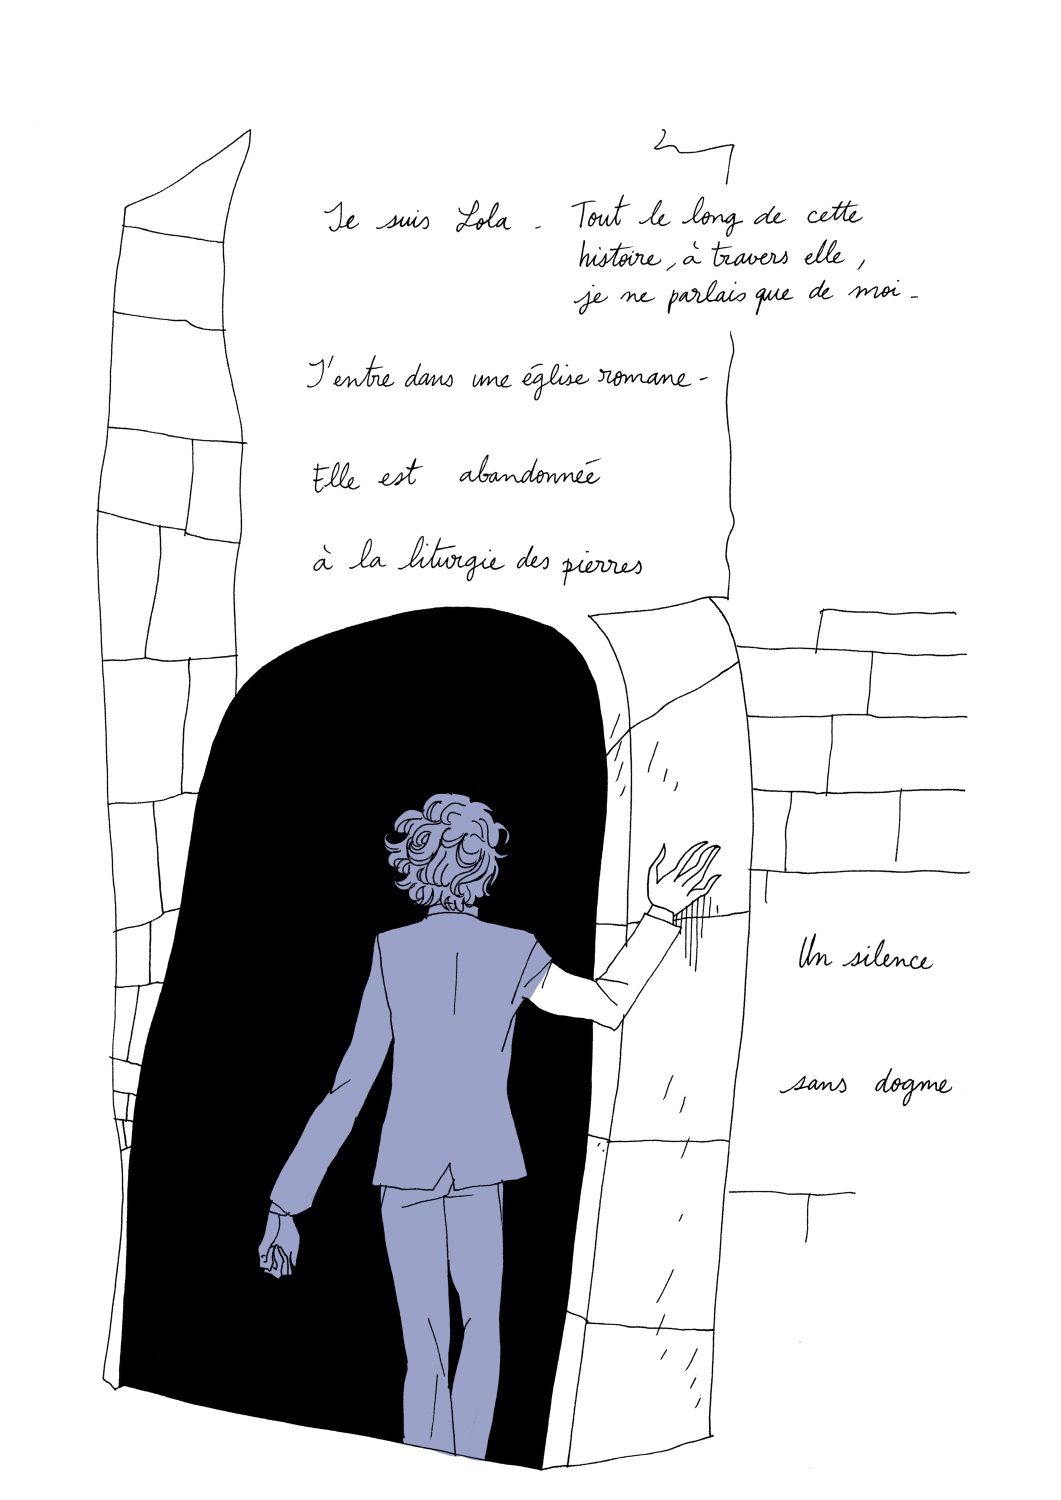 Je suis Lola. Tout le long de cette
histoire, à travers elle,
je ne parlais que de moi.
J'entre dans une église romane.
Elle est abandonnée
à la liturgie des pierres
Un silence
sans dogme